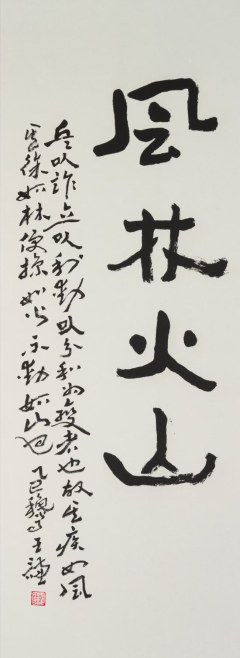 風林火山
兵以詐立以利動以分和为變者也故其疾如風
其徐如林侵掠如火不動如山也 乙巳